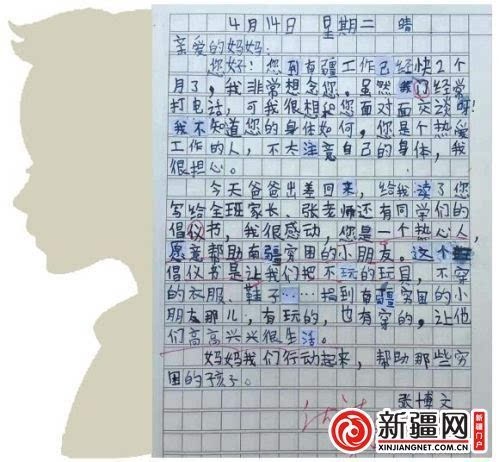 4月14日 星期二 晴
亲爱的妈妈:
您好!您到南疆工作已经快2个
月了,我非常想念您。虽然我们经常
打电话,可我很想和您面对面交谈呀!
我不知道您的身体如何,您是个热爱
工作的人,不大注意自己的身体,我
很担心。
今天爸爸出差回来,给我读了您
写给全班家长、张老师还有同学们的
倡仪书,我很感动,您是一个热心人,
愿意帮助南疆穷困的小朋友。这个
倡仪书是让我们把不玩的玩具,不穿
的衣服、鞋子……捐到南疆穷困的小
朋友那儿,有玩的,也有穿的,让他
们高高兴兴很生活。
妈妈我们行动起来,帮助那些穷
困的孩子。
张博文
新疆网
新疆门户
XINJIANGNET.COM.CN